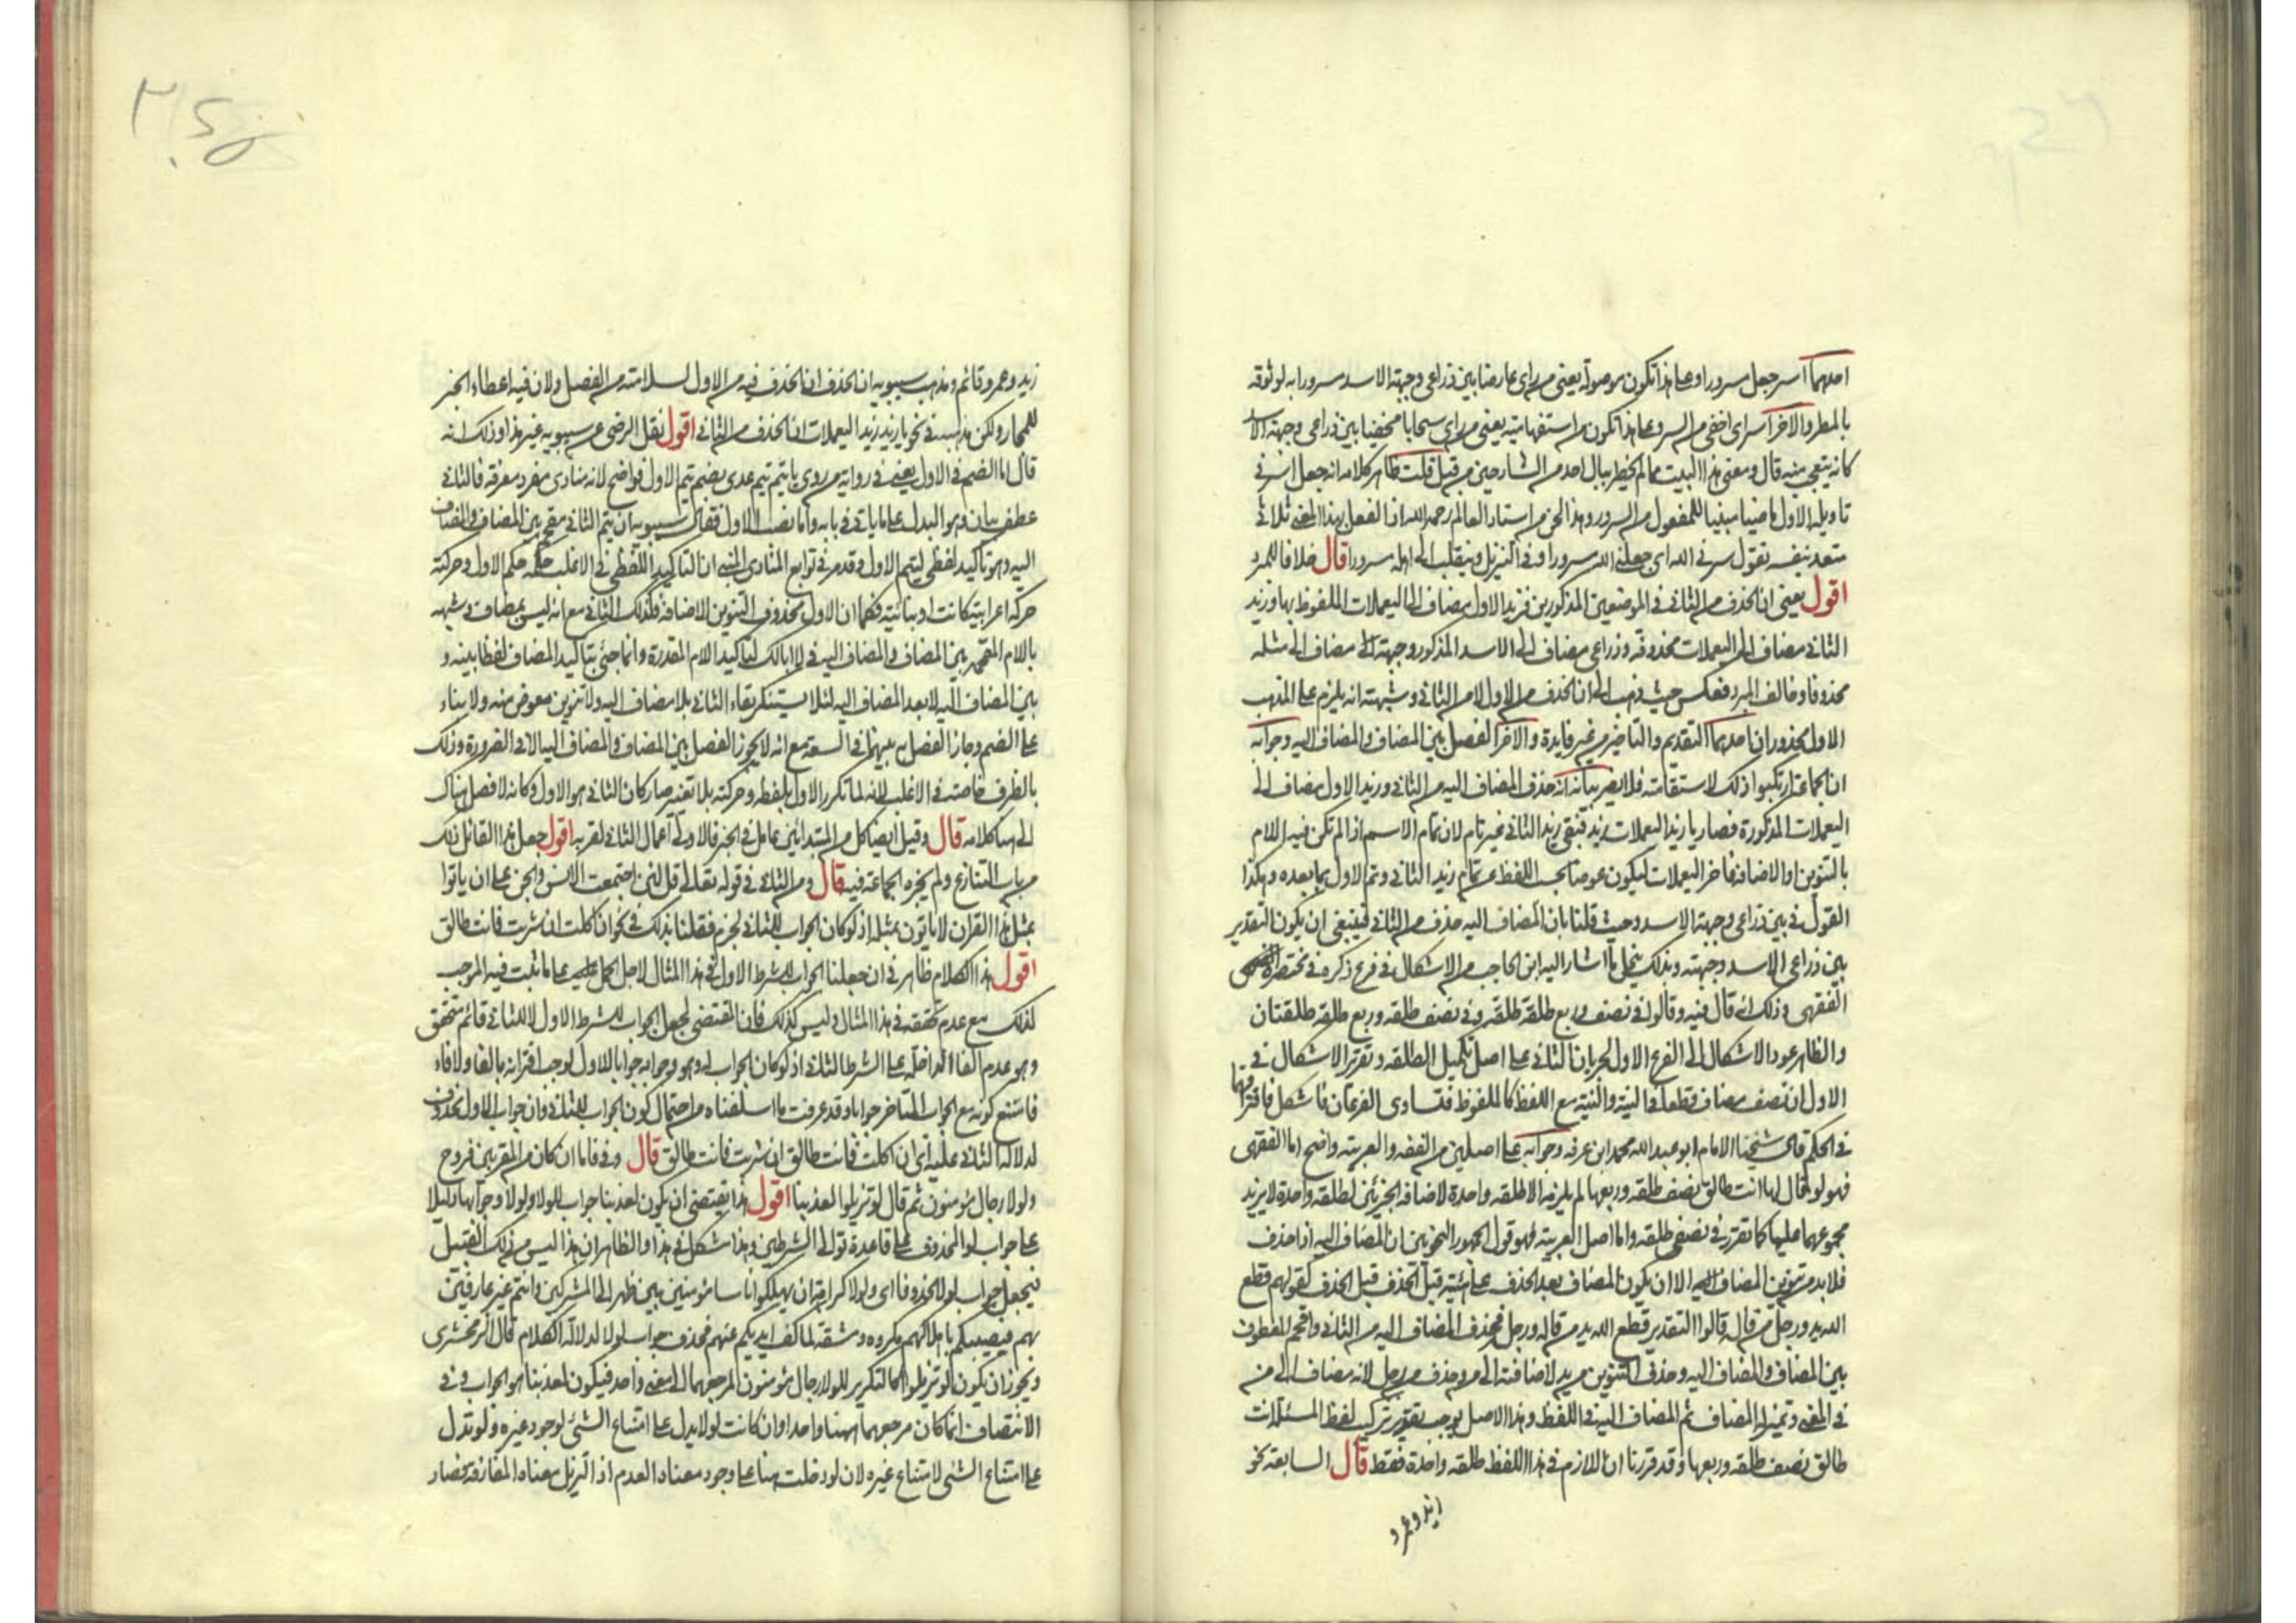 احدهما اسر جعل سرورا وعلى هذا تكون من موصولة يعني من راى عارضا بين ذراعي وجبهة الاسد سرورا به لوثوقه
بالمطر والاخر اسراى اخفى من السر وعلى هذا تكون من استفهامية يعني من راى سحابا مخفيا بين ذراعي وجبهة الاسد
كانه يتعجب منه قال ومعنى هذا البيت مما لم يخطر ببال احد من الشارحين من قبل قلت ظاهر كلامه انه جعل اسر في
تاويله الاول ماضيا مبنيا للمفعول من السرور وهذا لحن من استاد العالم رحمه الله اذ الفعل بهذا المعنى ثلاثي
متعد بنفسه تقول سرني الله اي جعلني الله سرورا وفي التنزيل وينقلب الى اهله سرورا قال خلافا للمبرد
اقول يعني ان الحذف من الثاني في الموضعين المذكورين فزيد الاول مضاف الى اليعملات الملفوظ بها وزيد
الثاني مضاف الى اليعملات محذوفة وذراعي مضاف الى الاسد المذكور وجبهة مضاف الى مثله
محذوفا وخالف المبرد فعكس حيث ذهب الى ان الحذف من الاول لا من الثاني وشبهته انه يلزم على المذهب
الاول محذوران احدهما التقديم والتاخير من غير فايدة والاخر الفصل بين المضاف والمضاف اليه وجوابه
ان الجماعة ارتكبوا ذلك لاستقامته فلا يضر بيانه انه حذف المضاف اليه من الثاني وزيد الاول مضاف الى
اليعملات المذكورة فصار يا زيد اليعملات زيد فبقي زيد الثاني غير تام لان تمام الاسم اذا لم تكن فيه اللام
بالتنوين او الاضافة فاخر اليعملات ليكون عوضا بحسب اللفظ عن تمام زيد الثاني وتم الاول بما بعده وهكذا
القول في بين ذراعي وجبهة الاسد وحيث قلنا بان المضاف اليه حذف من الثاني فينبغي ان يكون التقدير
بين ذراعي الاسد وجبهته وبذلك ينحل ما اشار اليه ابن الحاجب من الاشكال في فرع ذكره في مختصره
الفقهي وذلك انه قال فيه وقالوا في نصف وربع طلقة طلقة وفي نصف طلقة وربع طلقة طلقتان
والظاهر عود الاشكال الى الفرع الاول لجريان الثاني على اصل تكميل الطلقة وتقرير الاشكال في
الاول ان نصف مضاف قطعا في النية والنية مع اللفظ كالملفوظ فتساوى الفرعان فاشكل فاقتراقهما
في الحكم قال شيخنا الامام ابو عبد الله محمد ابن عرفة وجوابه على اصلين من الفقه والعربية واضح اما الفقهي
فهو لو قال لها انت طالق نصف طلقة وربعها لم يلزمه الا طلقة واحدة لاضافة الجزئين لطلقة واحدة لا يزيد
مجموعهما عليها كما تقرر في نصفي طلقة واما اصل العربية فهو قول الجمهور النحويين ان المضاف اليه اذا حذف
فلا بد من تنوين المضاف الا ان يكون المضاف بعد الحذف على هيئته قبل الحذف كقولهم قطع
الله يد ورجل من قاله قالوا التقدير قطع الله يد من قاله ورجل فحذف المضاف اليه من الثاني واقحم المعطوف
بين المضاف والمضاف اليه وحذف التنوين من يد لاضافته الى من وحذف من رجل لانه مضاف الى من
في المعنى وبمنزلة المضاف ثم المضاف اليه في اللفظ وهذا الاصل يوجب تقرير تركيب لفظ المسئلة انت
طالق نصف طلقة وربعها وقد قررنا ان اللازم في هذا اللفظ طلقة واحدة فقط قال السابعة نحو
زيد وعمرو
زيد وعمرو قائم ومذهب سيبويه ان الحذف انما الحذف فيه من الاول لسلامته من الفصل ولان فيه اعطاء الخبر
للمجاور ولكن مذهبه في نحو يا زيد زيد اليعملات ان الحذف من الثاني اقول نقل الرضى عن سيبويه غير هذا وذلك انه
قال اما الضم في الاول يعني في رواية من روى يا تيم تيم عدى بضم تيم الاول فواضح لانه منادى مفرد معرفة فالثاني
عطف بيان وهو البدل على ما ياتي في بابه واما نصب الاول فقال سيبويه ان تيم الثاني مقحم بين المضاف والمضاف
اليه وهو تاكيد لفظي لتيم الاول وقد مر في توابع المنادى المبني ان التاكيد اللفظي في الاغلب حكمه حكم الاول وحركته
حركة اعرابية كانت او بنائية فكما ان الاول محذوف التنوين للاضافة فكذلك الثاني مع انه ليس بمضاف وشبهه
باللام المقحم بين المضاف والمضاف اليه في لا ابالك لتاكيد اللام المقدرة وانما جئ بتاكيد المضاف لفظا بينه و
بين المضاف اليه لا بعد المضاف اليه لئلا يستنكر بقاء الثاني بلا مضاف اليه ولا تنوين معوض منه ولا بناء
على الضم وجاز الفصل به بينهما في السعة مع انه لا يجوز الفصل بين المضاف والمضاف اليه الا في الضرورة وذلك
بالظرف خاصة في الاغلب لانه لما تكرر الاول بلفظه وحركته بلا تغيير صار كان الثاني هو الاول وكانه لا فصل هناك
الى هنا كلامه قال وقيل ايضا كل من المبتدائين عامل في الخبر فالاولى اعمال الثاني لقربه اقول جعل هذا القائل ذلك
من باب التنازع ولم يجزه الجماعة فيه قال ومن الثاني في قوله تعالى قل لئن اجتمعت الانس والجن على ان ياتوا
بمثل هذا القران لا ياتون بمثله اذ لو كان الجواب للثاني لجزم فقلنا بذلك في نحو ان كلت ان شربت فانت طالق
اقول هذا الكلام ظاهر في ان جعلنا الجواب للشرط الاول في هذا المثال لاجل الحمل على ما ثبت فيه الموجب
لذلك مع عدم تحققه في هذا المثال وليس كذلك فان المقتضى لجعل الجواب للشرط الاول لا للثاني قائم متحقق
وهو عدم الفا الداخلة على الشرط الثاني اذ لو كان الجواب له وهو وجوابه جوابا للاول لوجب اقترانه بالفا ولا فاء
فامتنع كونه مع الجواب المتاخر جوابا وقد عرفت ما اسلفناه من احتمال كون الجواب للثاني وان جواب الاول محذوف
لدلالة الثاني عليه اي ان اكلت فانت طالق ان شربت فانت طالق قال وفي فاما ان كان من المقربين فروح
ولولا رجال مؤمنون ثم قال لو تزيلوا لعذبنا اقول هذا يقتضى ان يكون لعذبنا جواب للولا ولولا وجوابها دليلا
على جواب لو المحذوف على قاعدة توالي الشرطين وهذا مشكل في هذا والظاهر ان هذا ليس من ذلك القبيل
فيجعل جواب لولا محذوفا اي ولولا كراهة ان يهلكوا ناسا مؤمنين بين ظهراني المشركين وانتم غير عارفين
بهم فيصيبكم باهلاكهم مكروه ومشقة لما كف ايديكم عنهم فحذف جواب لولا لدلالة الكلام قال الزمخشرى
ويجوز ان يكون لو تزيلوا كالتكرير للولا رجال مؤمنون لمرجعهما الى معنى واحد فيكون لعذبنا هو الجواب وفي
الانتصاف انما كان مرجعهما ههنا واحدا وان كانت لولا يدل على امتناع الشئ لوجود غيره ولو تدل
على امتناع الشئ لامتناع غيره لان لو دخلت هنا على وجود معناه العدم اذ التزيل معناه المفارقة فصار